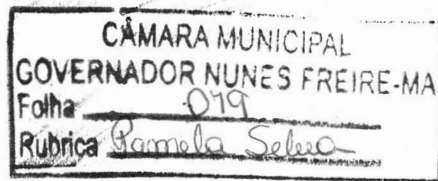 CÂMARA MUNICIPAL
GOVERNADOR NUNES FREIRE-MA
Folha 079
Rubrica Ramela Selva